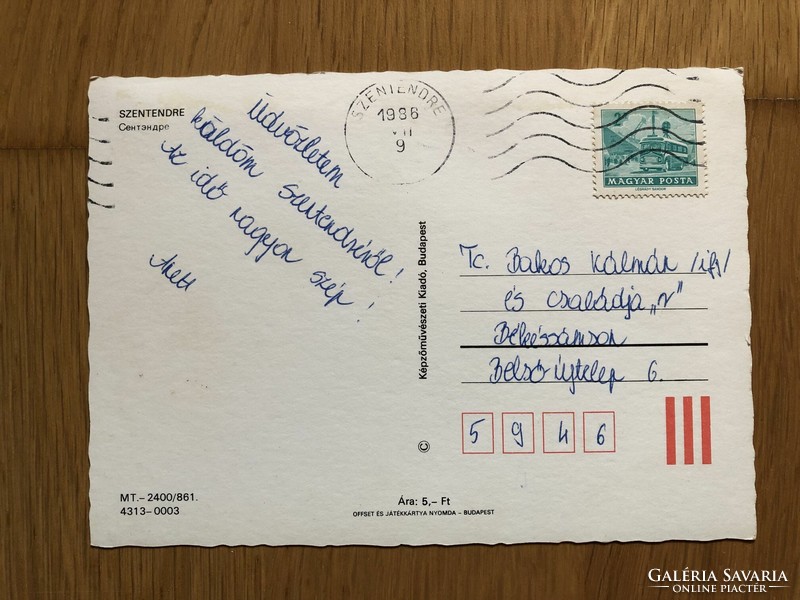 SZENTENDRE
Сентэндре
Üdvözletem
küldöm Szentendréről!
Az idő nagyon szép!
Anett
SZENTENDRE
1986
VII
9
2
MAGYAR POSTA
LÉGRÁDY SÁNDOR
Képzőművészeti Kiadó, Budapest
©
Tc. Bakos Kálmán /ifj/
és családja „r"
Békéssámson
Belső Újtelep 6.
5 9 4 6
MT.– 2400/861.
4313–0003
Ára: 5,– Ft
OFFSET ÉS JÁTÉKKÁRTYA NYOMDA – BUDAPEST
GALÉRIA SAVARIA
ONLINE PIACTÉR